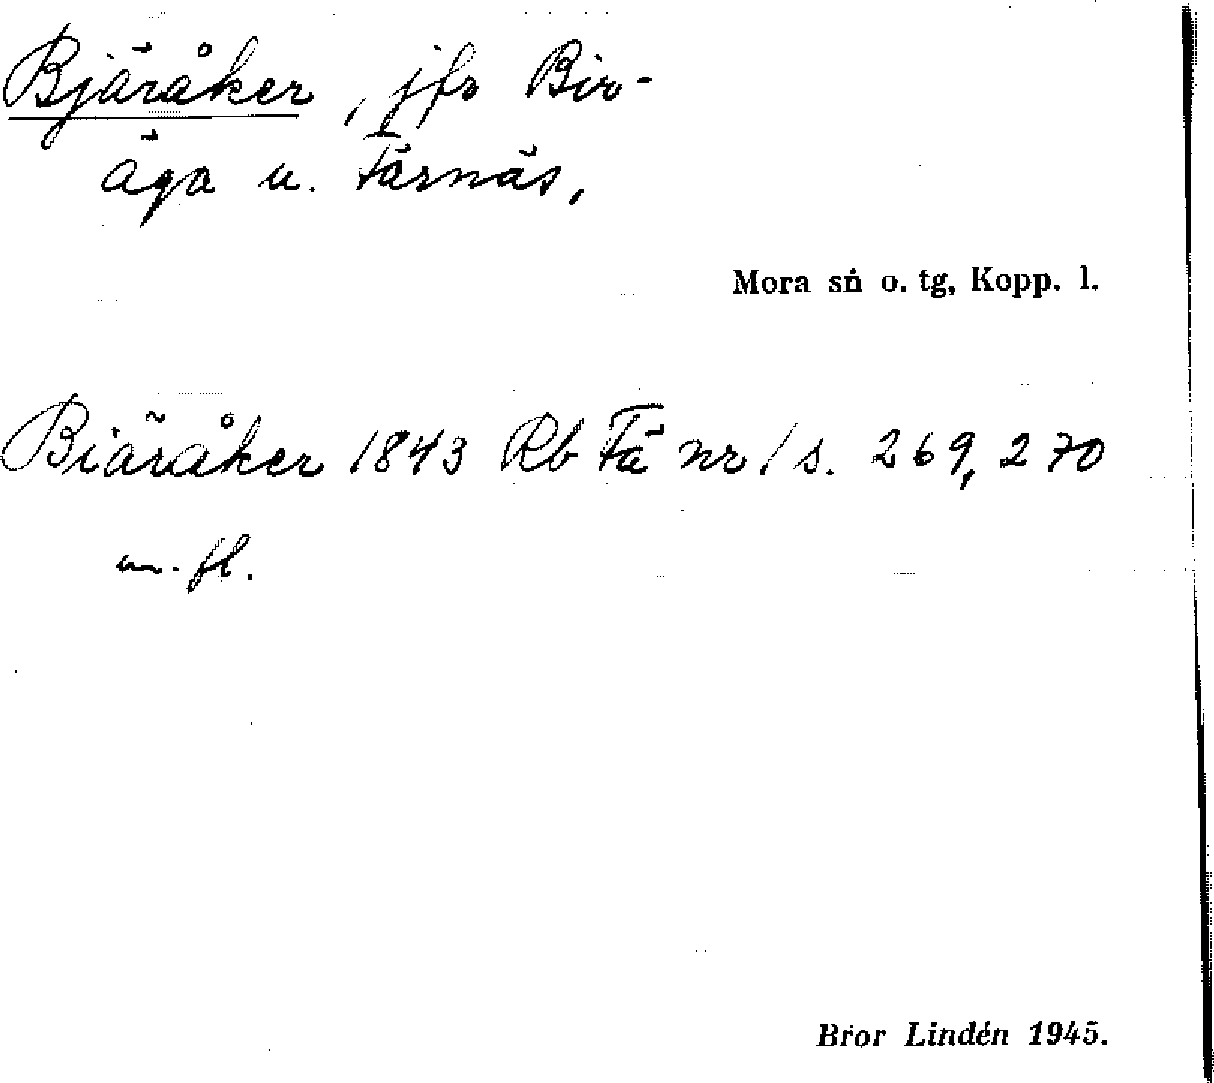 Bjäråker, jfr Bir-
äga u. Färnäs,
Mora sn o. tg, Kopp. l.
Biäråker 1843 Rb Fä nr 1 s. 269, 270
m. fl.
Bror Lindén 1945.